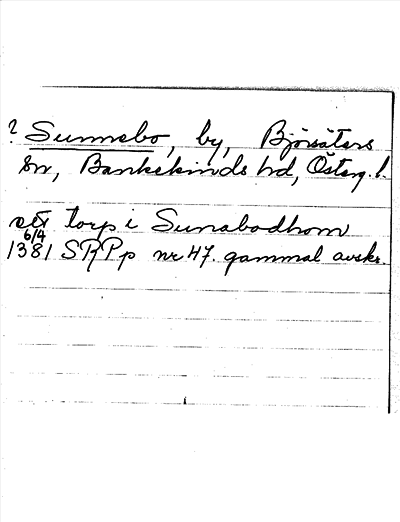 ? Sunnebo, by, Björsäters
sn, Bankekinds hd, Österg. l.
ett torp i Sunabodhom
6/4
1381 SRPp nr 47. gammal avskr.